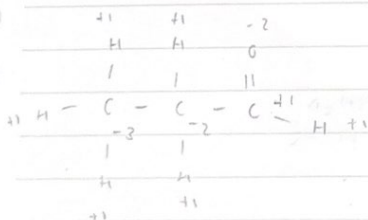 +1 +1 -2
H H O
| | ||
+1 H - C - C - C +1 - H +1
-3 -2
| |
H H
+1 +1